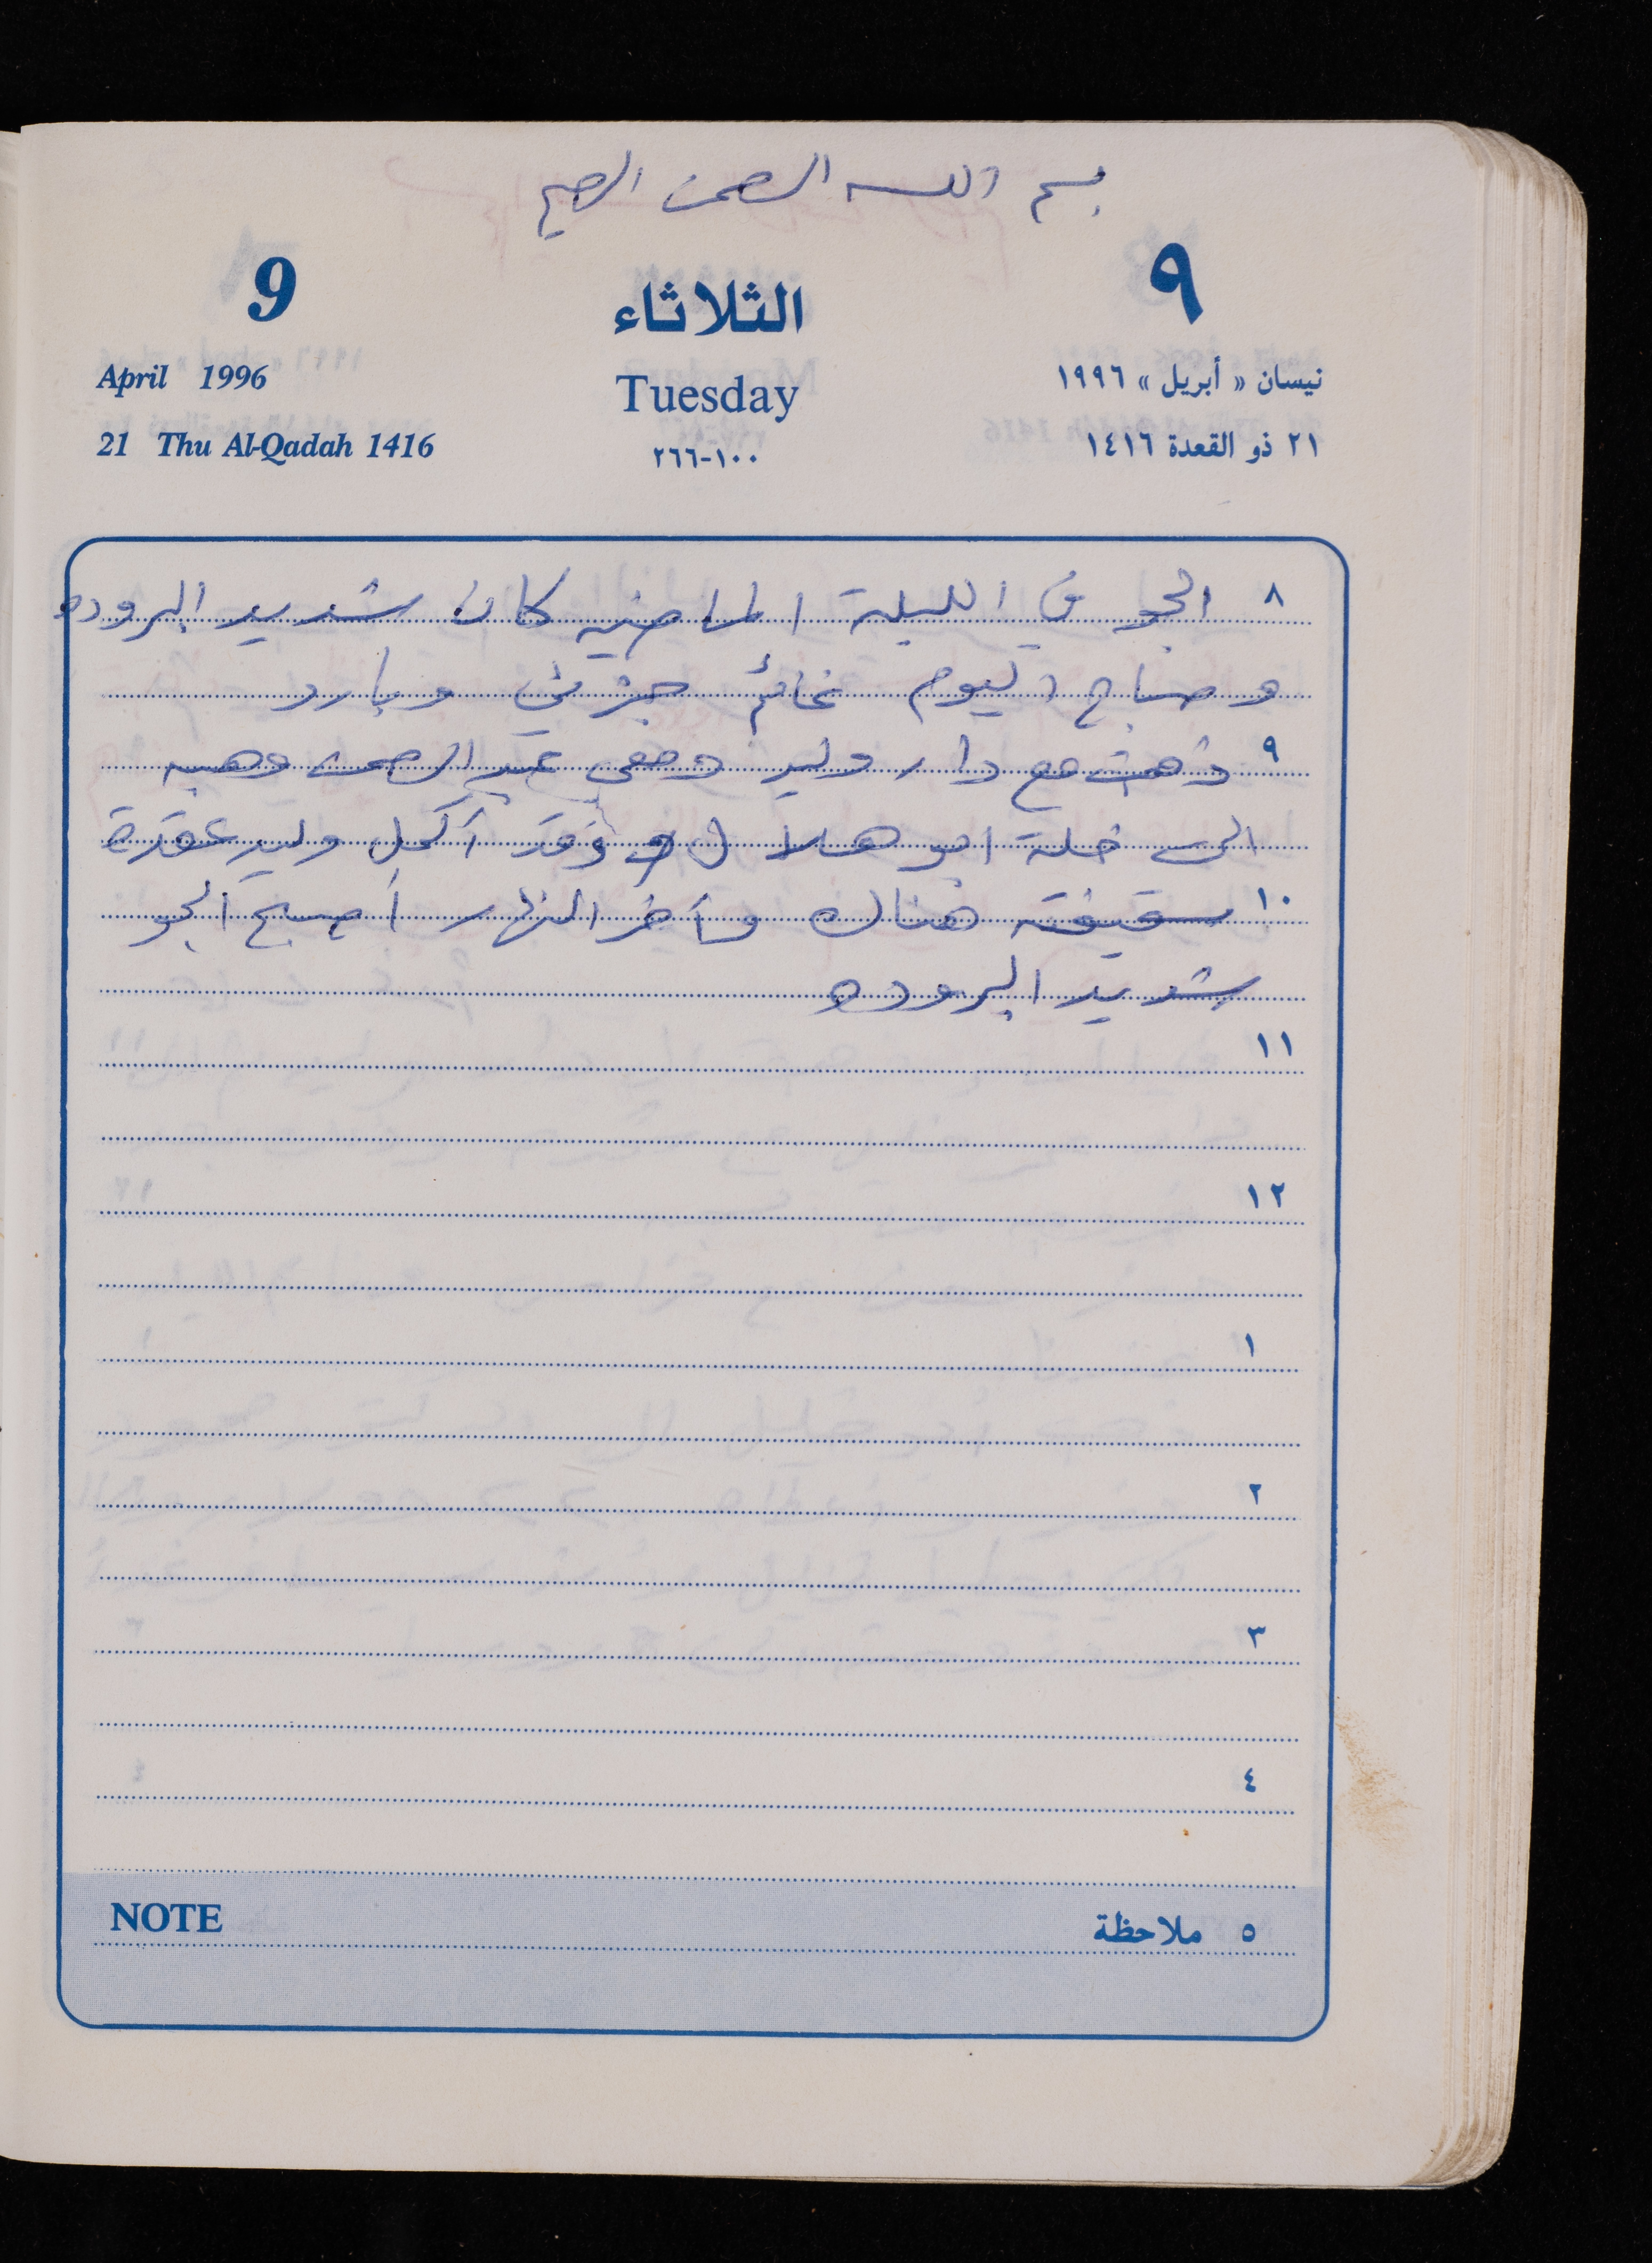 بسم الله الرحمن الرحيم
9 الثلاثاء ٩
April 1996 Tuesday نيسان « أبريل » ١٩٩٦
21 Thu Al-Qadah 1416 ١٠٠-٢٦٦ ٢١ ذو القعدة ١٤١٦
٨ الجو في الليلة الماضيه كان شديد البروده
و صباح اليوم غائم جزئي وبارد
٩ ذهبت مع دار وليد ومعي عبد الرحمن وهبه
الى خلة ابو هلال وقد أكمل وليد عقدة
١٠ سقيفته هناك وآخر النهار أصبح الجو
شديد البروده
١١
١٢
١
٢
٣
٤
NOTE ٥ ملاحظة